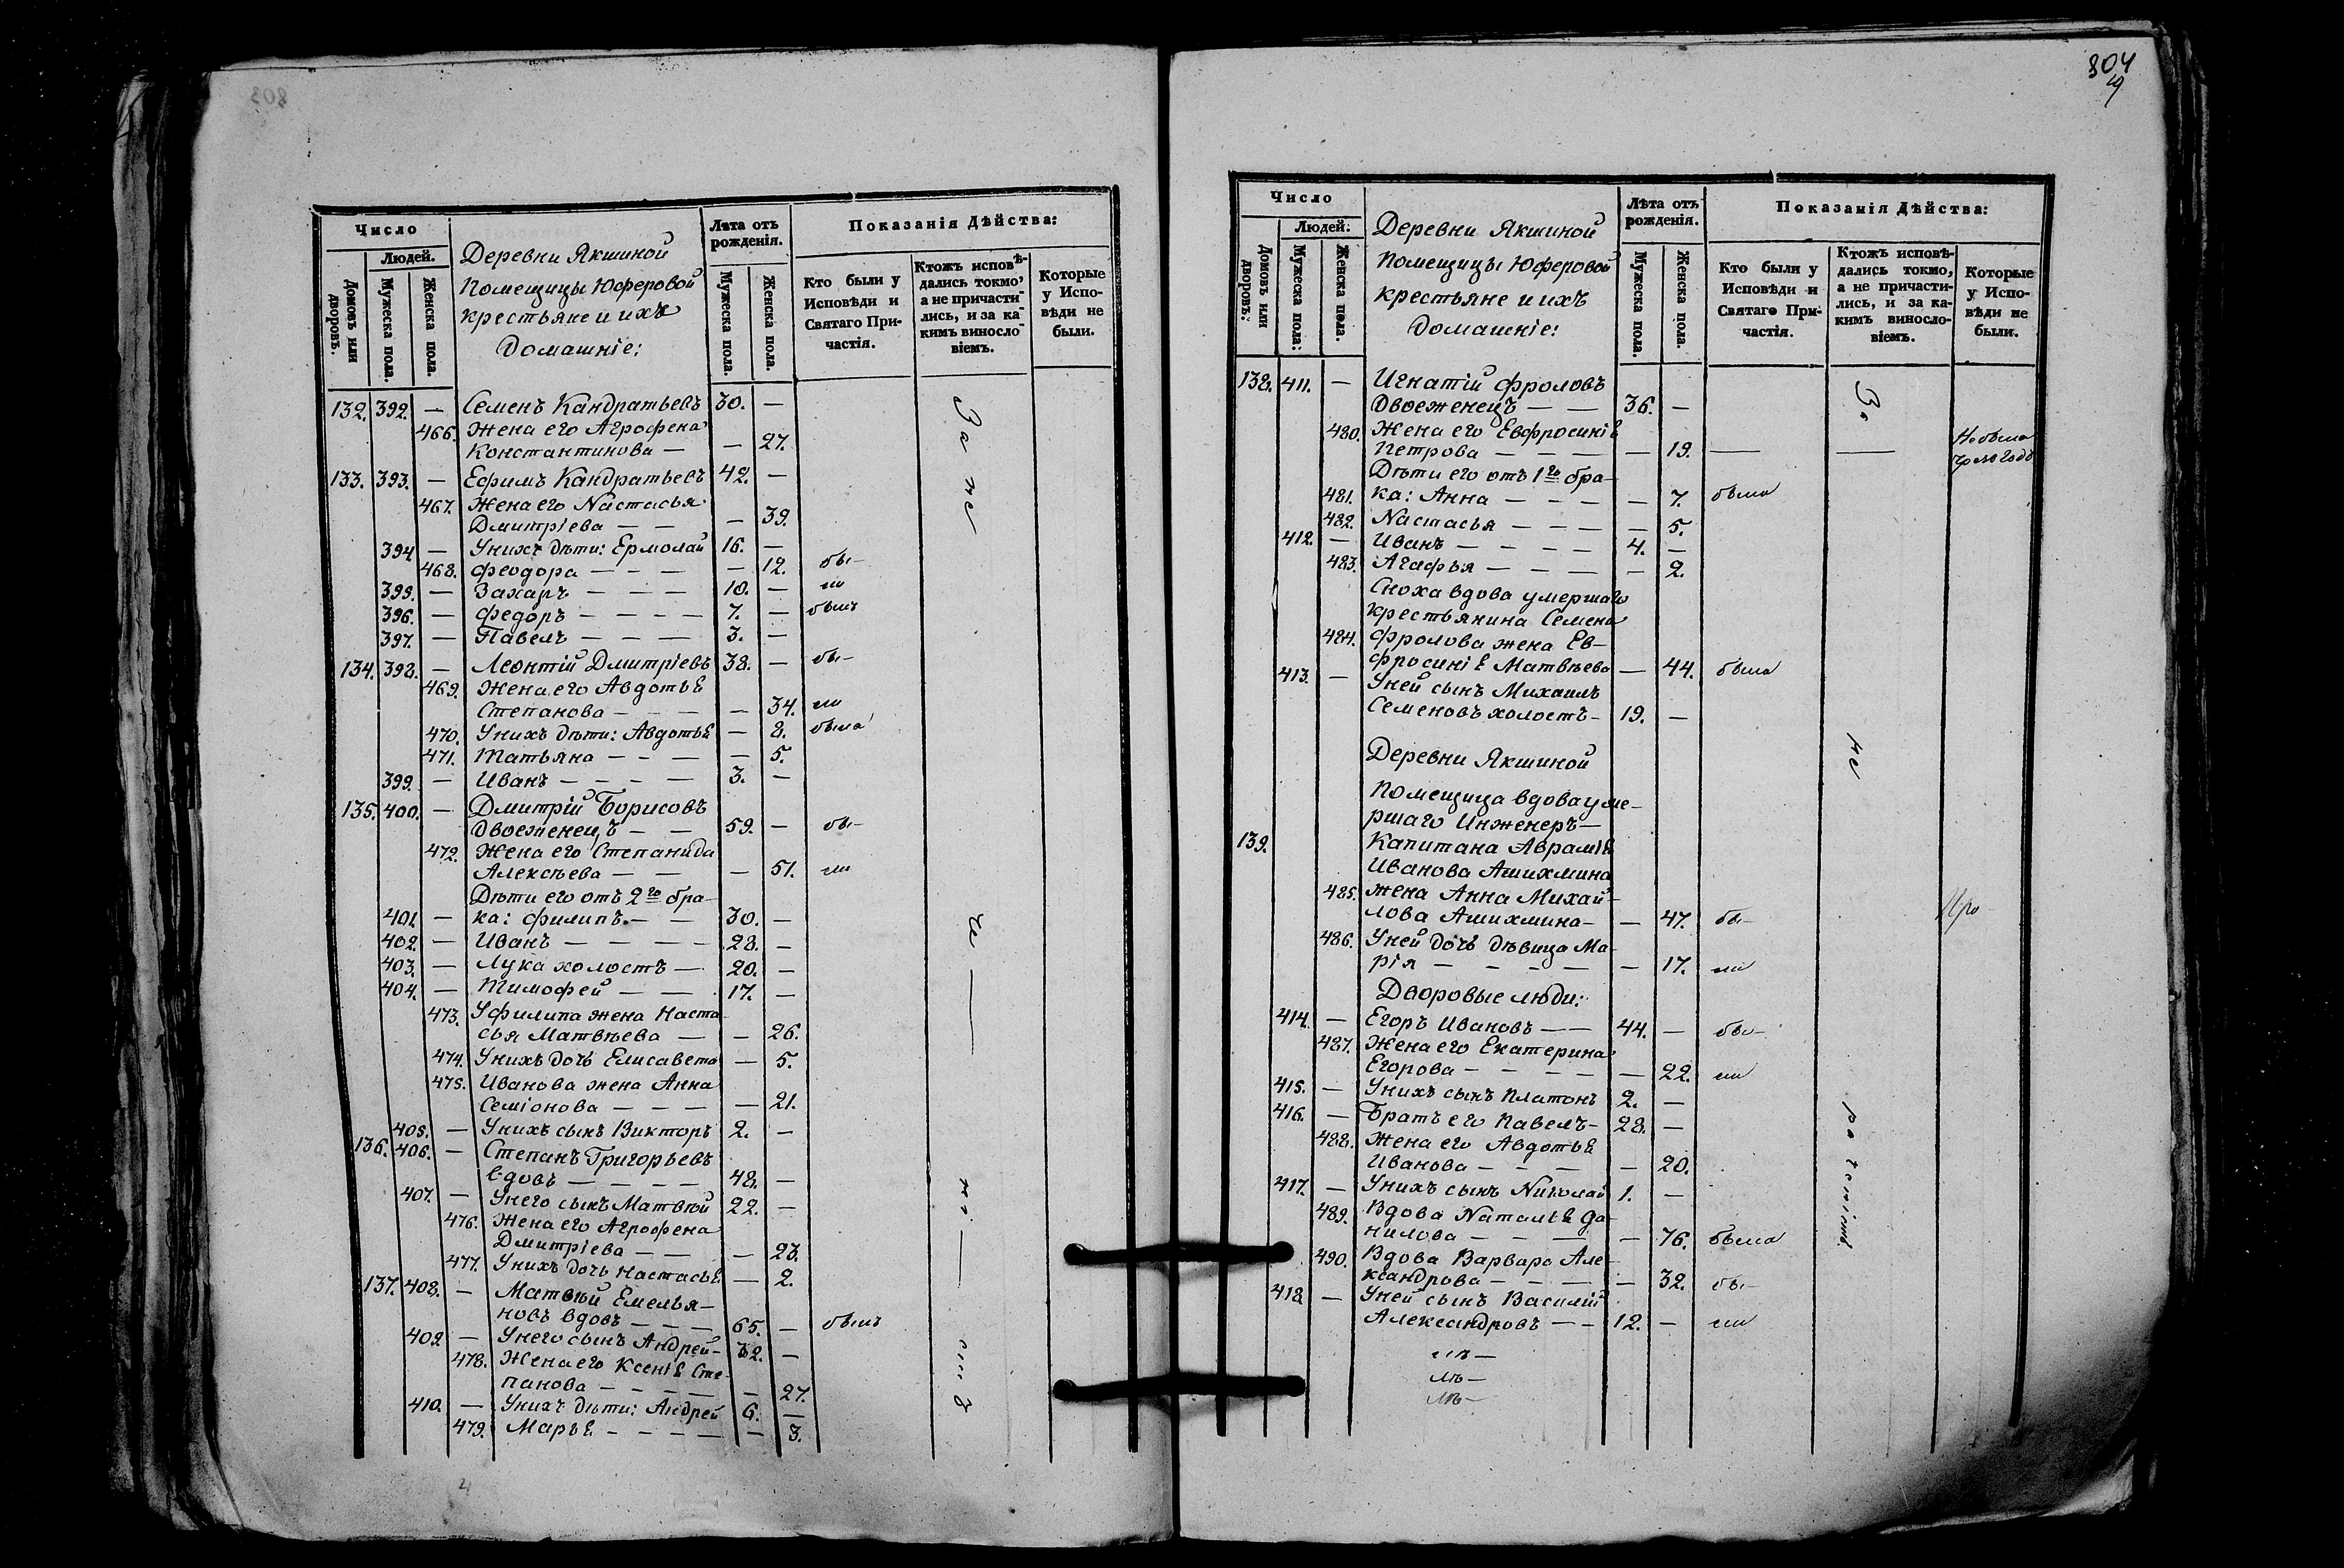 803
Число
Людей.
Домовъ или дворовъ.
Мужеска пола.
Женска пола.
Деревни Якшиной
Помещицы Юферовой
крестьяне и ихъ
домашніе:
Лѣта отъ
рожденія.
Мужеска пола.
Женска пола.
Показанія Дѣйства:
Кто были у
Исповѣди и
Святаго При-
частія.
Ктожъ исповѣ-
дались токмо,
а не причасти-
лись, и за ка-
кимъ виносло-
віемъ.
Которые
у Испо-
вѣди не
были.
132. 392. — Семенъ Кандратьевъ 30. —
466. Жена его Агрофена
Константинова — — 27.
133. 393. — Ефимъ Кандратьевъ 42. —
467. Жена его Настасья
Дмитріева — — — 39.
394 — Унихъ дѣти: Ермолай 16. —
468. Феодора — — — — 12. бы-
399. — Захаръ — — — 10. — ли
396. — Федоръ — — — — 7. — былъ
397. — Павелъ — — — 3. —
134. 398. — Леонтій Дмитріевъ 38. — бы-
469. Жена его Авдотьѣ
Степанова — — — — 34. ли
470. Унихъ дѣти: Авдотьѣ — 8. была
471. Татьяна — — — — 5.
399. — Иванъ — — — — 3. —
135. 400. — Дмитрій Борисовъ
двоеженецъ — — 59. — бы-
472. Жена его Степанида
Алексѣева — — — 51. ли
Дѣти его отъ 2го бра-
401. — ка: Филипъ — — 30. —
402. — Иванъ — — — — 28. —
403. — Лука холостъ — 20. —
404. — Тимофей — — 17. —
473. Уфилипа жена Наста-
сья Матвѣева — — 26.
474. Унихъ дочь Елисавета — 5.
475. Иванова жена Анна
Семіонова — — — — 21.
405. — Унихъ сынъ Викторъ 2. —
136. 406. — Степанъ Григорьевъ
вдовъ — — — — 48. —
407. — Унего сынъ Матвѣй 22. —
476. Жена его Агрофена
Дмитріева — — — 23.
477. Унихъ дочь Настасьѣ — 2.
137. 408. — Матвѣй Емелья-
новъ вдовъ — — — 65. — былъ
409 — Унего сынъ Андрей — 32. —
478. Жена его Ксеніѣ Сте-
панова — — — — — 27.
410. — Унихъ дѣти: Андрей 6. —
479. Марьѣ — — — — — 3.
За не
804
Число
Людей.
Домовъ или дворовъ.
Мужеска пола.
Женска пола.
Деревни Якшиной
Помещицы Юферовой
крестьяне и ихъ
домашніе:
Лѣта отъ
рожденія.
Мужеска пола.
Женска пола.
Показанія Дѣйства:
Кто были у
Исповѣди и
Святаго При-
частія.
Ктожъ исповѣ-
дались токмо,
а не причасти-
лись, и за ка-
кимъ виносло-
віемъ.
Которые
у Испо-
вѣди не
были.
138. 411. — Игнатій Фроловъ
Двоеженецъ — — 36. —
480. Жена его Евфросиніѣ
Петрова — — — — 19. — — Небыла
Дѣти его отъ 1го бра-
481. ка: Анна — — — — 7. была
482. Настасья — — — — 5.
412. — Иванъ — — — — 4. —
483. Агафья — — — — 2.
Сноха вдова умершаго
крестьянина Семена
484. Фролова жена Ев-
фросиніѣ Матвѣева — 44. была
413. — Уней сынъ Михаилъ
Семеновъ холостъ — 19. —
Деревни Якшиной
Помещица вдова уме-
ршаго Инженеръ —
139. Капитана Авраміѣ
Иванова Ашихмина
485. жена Анна Михай-
лова Ашихмина — — 47. бы-
486. Уней дочь дѣвица Ма-
рія — — — — — 17. ли
Дворовые люди:
414. — Егоръ Ивановъ — — 44. — бы-
487. Жена его Екатерина
Егорова — — — — — 22. ли
415. — Унихъ сынъ Платонъ 2. —
416. — Братъ его Павелъ — 28. —
488. Жена его Авдотьѣ
Иванова — — — — 20.
417. — Унихъ сынъ Николай 1. —
489. Вдова Наталіѣ Да-
нилова — — — — 76. была
490. Вдова Варвара Але-
ксандрова — — — — 32. бы-
418 — Уней сынъ Василій
Александровъ — — 12. — ли
За
не